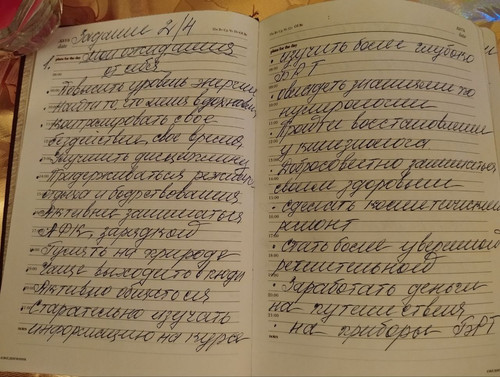 Задание 2/4
1. Мои ожидания
от себя
Повысить уровень энергии
Найти то что меня вдохновляет
Контролировать свое
бездействие, свое время
Улучшить дисциплину
Придерживаться режима
отдыха и бодрствования
Активнее заниматься
АФК, зарядкой
Гулять на природе
Чаще выходить в люди
Активно общаться
Старательно изучать
информацию на курсе
• изучить более глубоко
БРТ
• овладеть знаниями по
нумерологии
• Пройти восстановление
у кинезиолога
• Добросовестно заниматься
своим здоровьем
• сделать косметический
ремонт
• Стать более уверенной
решительной
• Заработать деньги
на путешествия
• на приборы БРТ